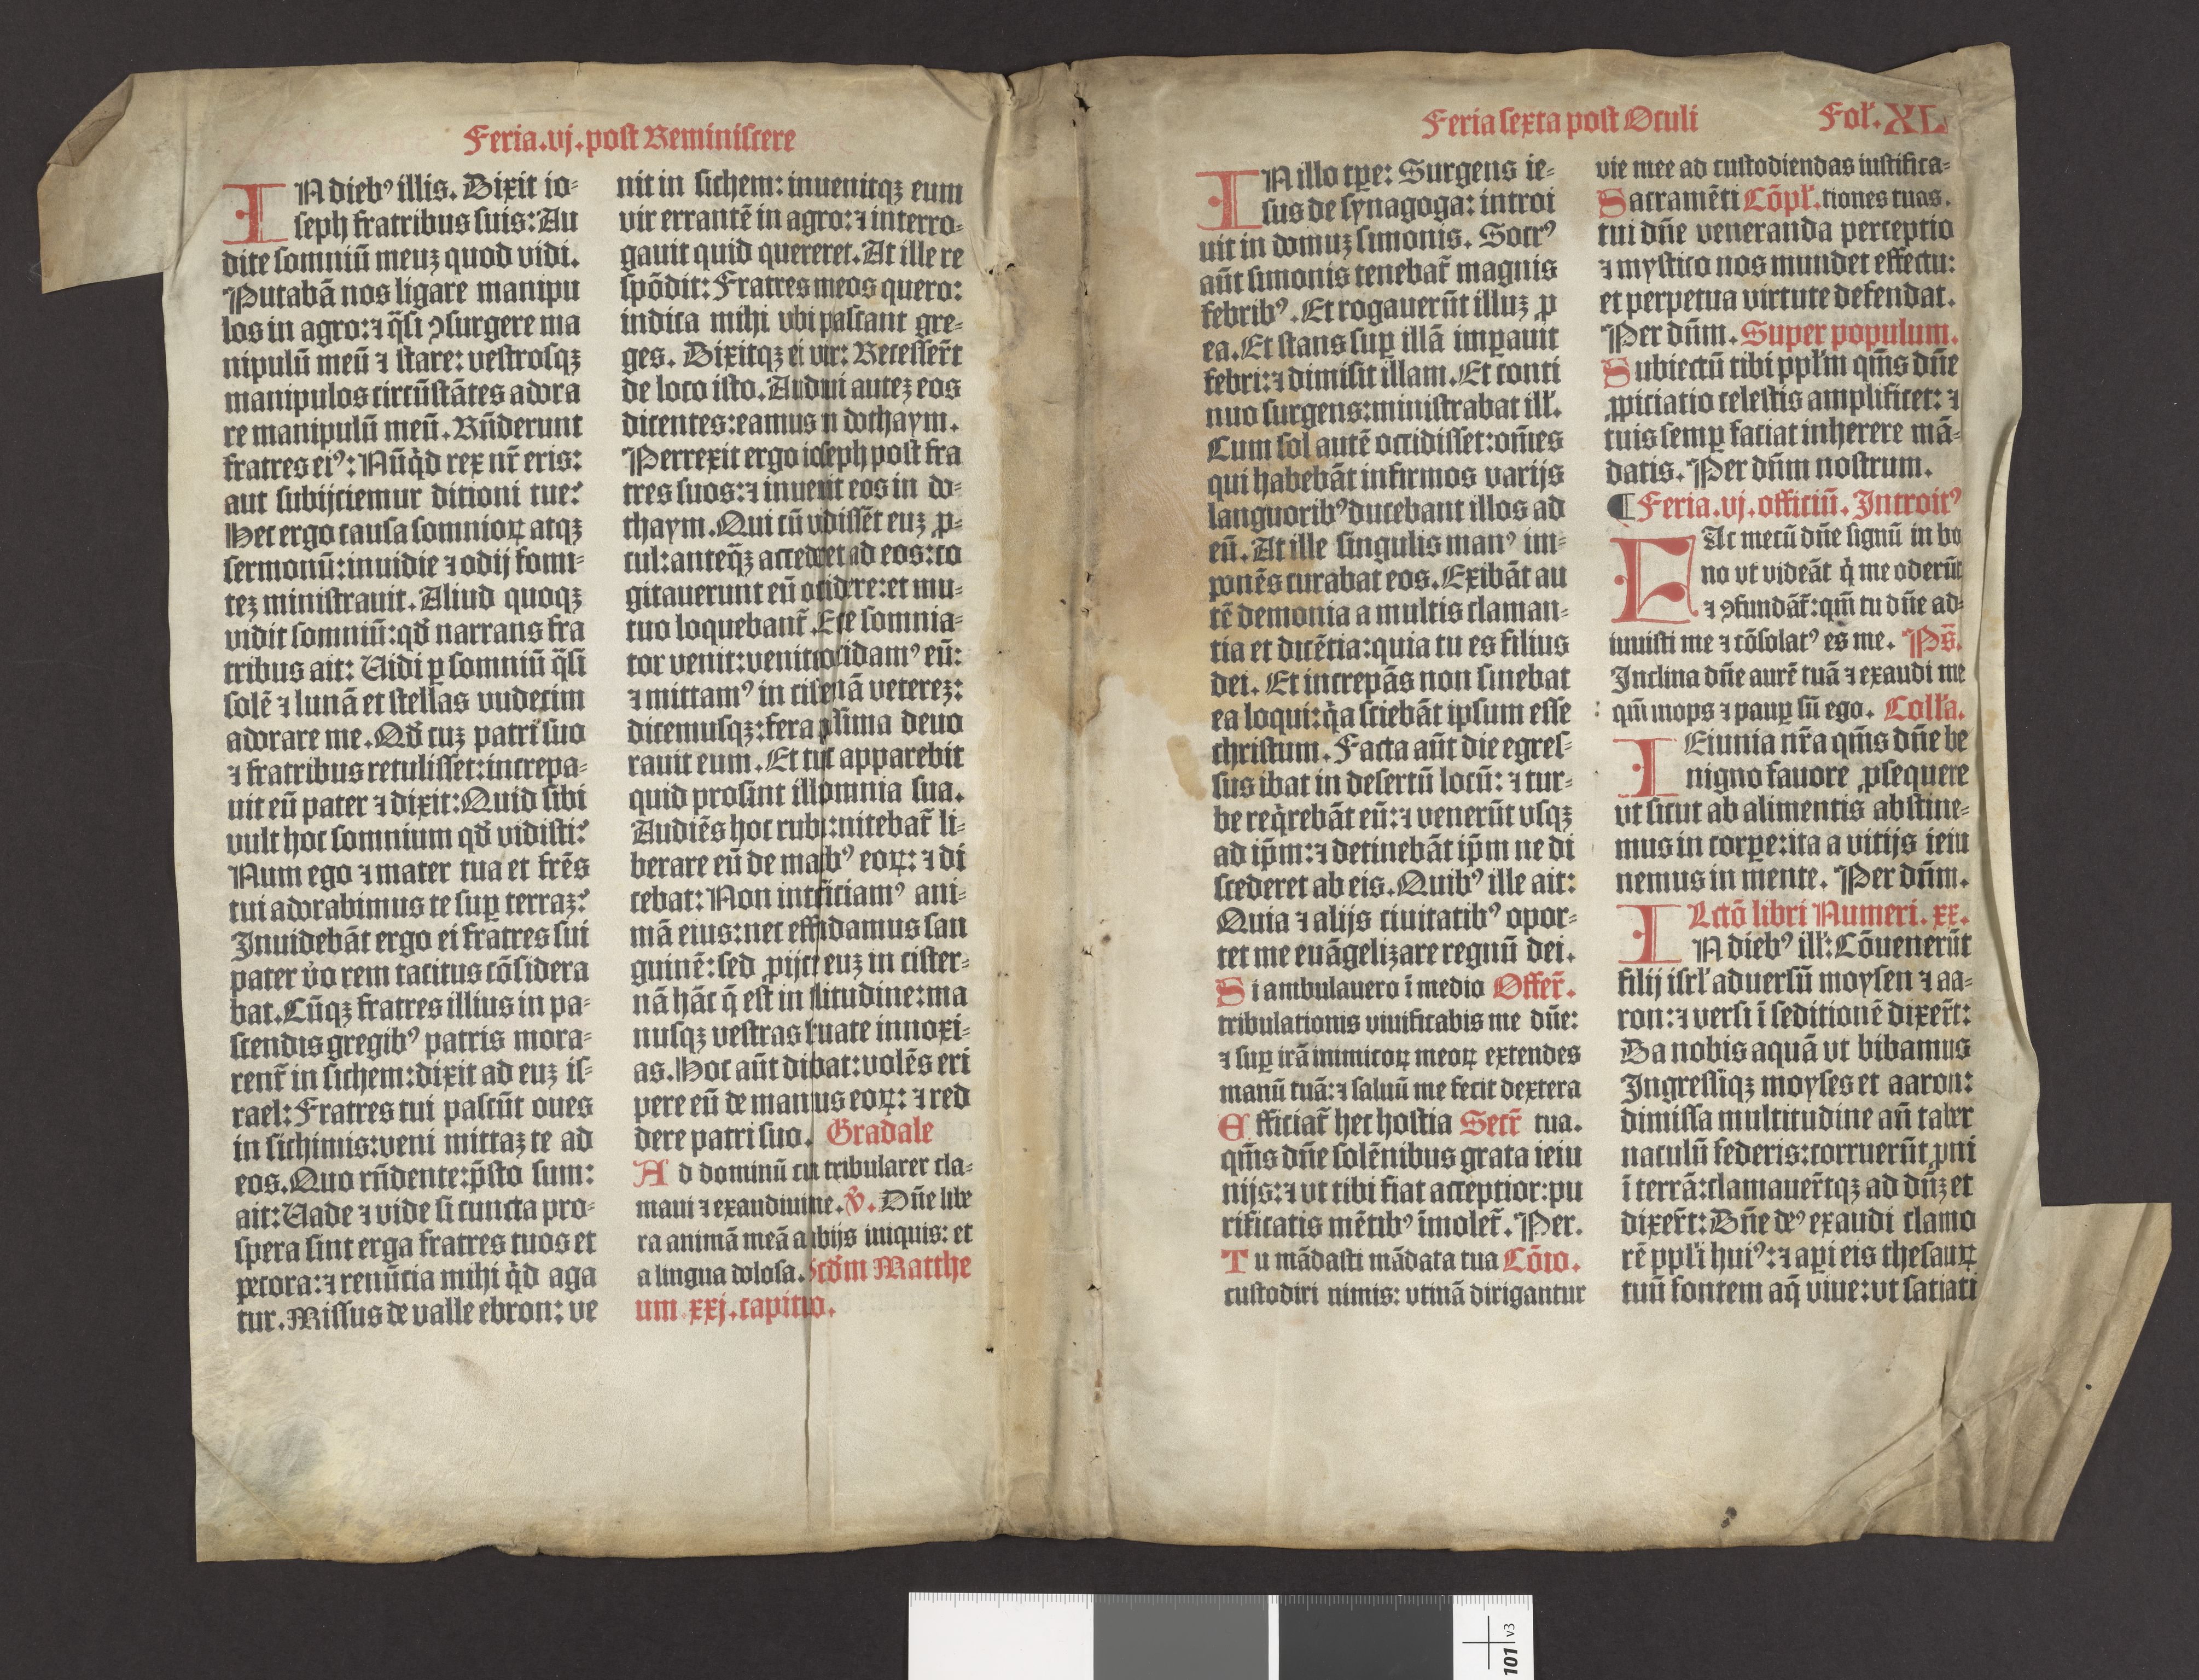 Feria.vj.post Reminiscere
IN diebꝰ illis. Dixit io-
seph fratribus suis: Au
dite somniū meuʒ quod vidi.
Putabā nos ligare manipu
los in agro: ⁊ q̄si ꝯsurgere ma
nipulū meū ⁊ stare: vestrosqʒ
manipulos circūstātes adora
re manipulū meū. Rn̄derunt
fratres eiꝰ: Nūqͥd rex nr̄ eris:
aut subijciemur ditioni tue?
Hec ergo causa somnioꝝ atqʒ
sermonū: inuidie ⁊ odij fomi-
teʒ ministrauit. Aliud quoqʒ
vidit somniū: qd̄ narrans fra
tribus ait: Uidi ꝑ somniū q̄si
solē ⁊ lunā et stellas vndecim
adorare me. Qd̄ cuʒ patri suo
⁊ fratribus retulisset: increpa-
uit eū pater ⁊ dixit: Quid sibi
vult hoc somnium qd̄ vidisti?
Num ego ⁊ mater tua et fr̄es
tui adorabimus te suꝑ terraʒ?
Inuidebāt ergo ei fratres sui
pater v̓o rem tacitus cōsidera
bat. Cūqʒ fratres illius in pa-
scendis gregibꝰ patris mora-
rent̄ in sichem: dixit ad euʒ is-
rael: Fratres tui pascūt oues
in sichimis: veni mittaʒ te ad
eos. Quo rn̄dente: p̄sto sum:
ait: Uade ⁊ vide si cuncta pro-
spera sint erga fratres tuos et
pecora: ⁊ renūcia mihi qͥd aga
tur. Missus de valle ebron: ve
nit in sichem: inuenitqʒ eum
vir errantē in agro: ⁊ interro-
gauit quid quereret. At ille re
spōdit: Fratres meos quero:
indica mihi vbi pascant gre-
ges. Dixitqʒ ei vir: Recesser̄t
de loco isto. Audiui auteʒ eos
dicentes: eamus n dothaym.
Perrexit ergo ioseph post fra
tres suos: ⁊ inuenit eos in do-
thaym. Qui cū vidissēt euʒ ꝓ-
cul: anteq̄ʒ accederet ad eos: co
gitauerunt eū occidere: et mu-
tuo loquebant̄. Ecce somnia-
tor venit: venite occidamꝰ eū:
⁊ mittamꝰ in cisternā vetereʒ:
dicemusqʒ: fera pessima deuo
rauit eum. Et tūc apparebit
quid prosint illi somnia sua.
Audiēs hoc ruben: nitebat̄ li-
berare eū de manibꝰ eoꝝ: ⁊ di
cebat: Non interficiamꝰ ani-
mā eius: nec effundamus san
guinē: sed ꝓijcite euʒ in cister-
nā hāc q̄ est in solitudine: ma
nusqʒ vestras seruate innoxi-
as. Hoc aūt dicebat: volēs eri
pere eū de manibus eoꝝ: ⁊ red
dere patri suo. Gradale
Ad dominū cū tribularer cla-
maui ⁊ exaudiuit me. ℣. Dn̄e libe
ra animā meā a labijs iniquis: et
a lingua dolosa. Scd̄m Matthe
um xxj. capitulo.
Feria sexta post Oculi Foł. XL
IN illo tꝑe: Surgens ie-
sus de synagoga: introi
uit in domuʒ simonis. Socrꝰ
aūt simonis tenebat̄ magnis
febribꝰ. Et rogauerūt illuʒ ꝓ
ea. Et stans suꝑ illā imꝑauit
febri: ⁊ dimisit illam. Et conti
nuo surgens: ministrabat ill̓.
Cum sol autē occidisset: om̄es
qui habebāt infirmos varijs
languoribꝰ ducebant illos ad
eū. At ille singulis manꝰ im-
ponēs curabat eos. Exibāt au
tē demonia a multis claman-
tia et dicētia: quia tu es filius
dei. Et increpās non sinebat
ea loqui: qͥa sciebāt ipsum esse
christum. Facta aūt die egres-
sus ibat in desertū locū: ⁊ tur-
be reqͥrebāt eū: ⁊ venerūt vsqʒ
ad ip̄m: ⁊ detinebāt ip̄m ne di
scederet ab eis. Quibꝰ ille ait:
Quia ⁊ alijs ciuitatibꝰ opor-
tet me euāgelizare regnū dei.
Si ambulauero ī medio Offer̄.
tribulationis viuificabis me dn̄e:
⁊ suꝑ irā inimicoꝝ meoꝝ extendes
manū tuā: ⁊ saluū me fecit dextera
Efficiat̄ hec hostia Secr̄ tua.
qm̄s dn̄e solēnibus grata ieiu
nijs: ⁊ vt tibi fiat acceptior: pu
rificatis mētibꝰ īmolet̄. Per.
Tu mādasti mādata tua Cōio.
custodiri nimis: vtinā dirigantur
vie mee ad custodiendas iustifica-
Sacramēti Cōpl̓. tiones tuas.
tui dn̄e veneranda perceptio
⁊ mystico nos mundet effectu:
et perpetua virtute defendat.
Per dn̄m. Super populum.
Subiectū tibi ppl̓m qm̄s dn̄e
ꝓpiciatio celestis amplificet: ⁊
tuis semꝑ faciat inherere mā-
datis. Per dn̄m nostrum.
¶ Feria. vj. officiū. Introitꝰ
FAc mecū dn̄e signū in bo
no vt videāt qͥ me oderūt
⁊ ꝯfundāt̄: qm̄ tu dn̄e ad-
iuuisti me ⁊ cōsolatꝰ es me. Ps̄.
Inclina dn̄e aurē tuā ⁊ exaudi me
qm̄ inops ⁊ pauꝑ sū ego. Coll̓a.
IEiunia nr̄a qm̄s dn̄e be
nigno fauore ꝓsequere
vt sicut ab alimentis abstine-
mus in corꝑe: ita a vitijs ieiu
nemus in mente. Per dn̄m.
Lctō libri Numeri. xx.
IN diebꝰ ill̓: Cōuenerūt
filij isrl̓ aduersū moysen ⁊ aa-
ron: ⁊ versi ī seditionē dixer̄t:
Da nobis aquā vt bibamus
Ingressiqʒ moyses et aaron:
dimissa multitudine an̄ taber
naculū federis: corruerūt ꝓni
ī terrā: clamauer̄tqʒ ad dn̄ʒ et
dixer̄t: Dn̄e deꝰ exaudi clamo
rē ppl̓i huiꝰ: ⁊ aꝑi eis thesauꝝ
tuū fontem aq̄ viue: vt satiati